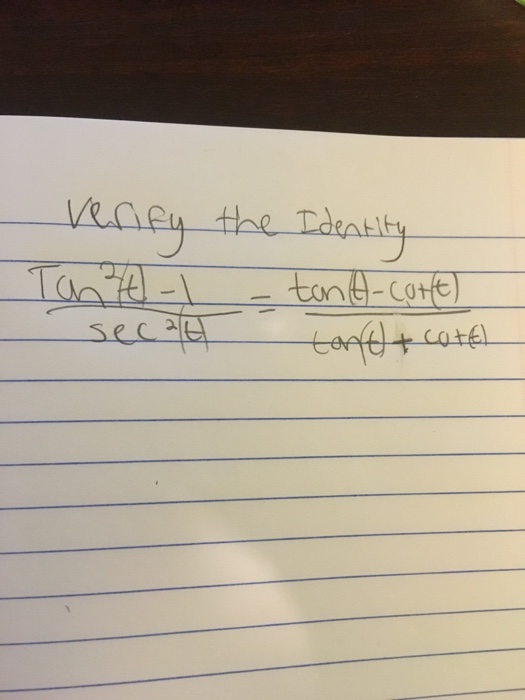 Verify the Identity
Tan²(t) - 1 / sec²(t) = tan(t) - cot(t) / tan(t) + cot(t)